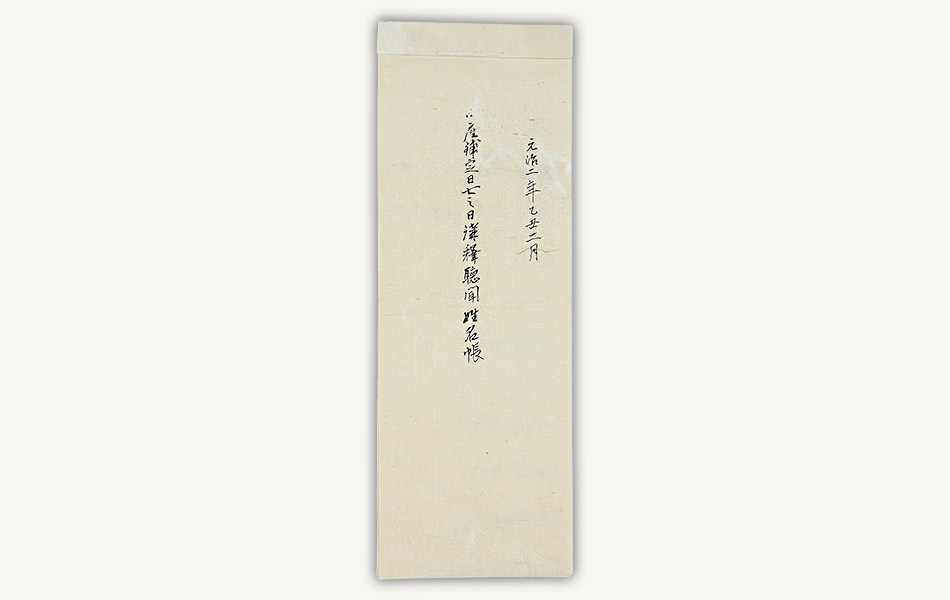 元治二年乙丑二月
座舗定日七之日講釋聴聞姓名帳